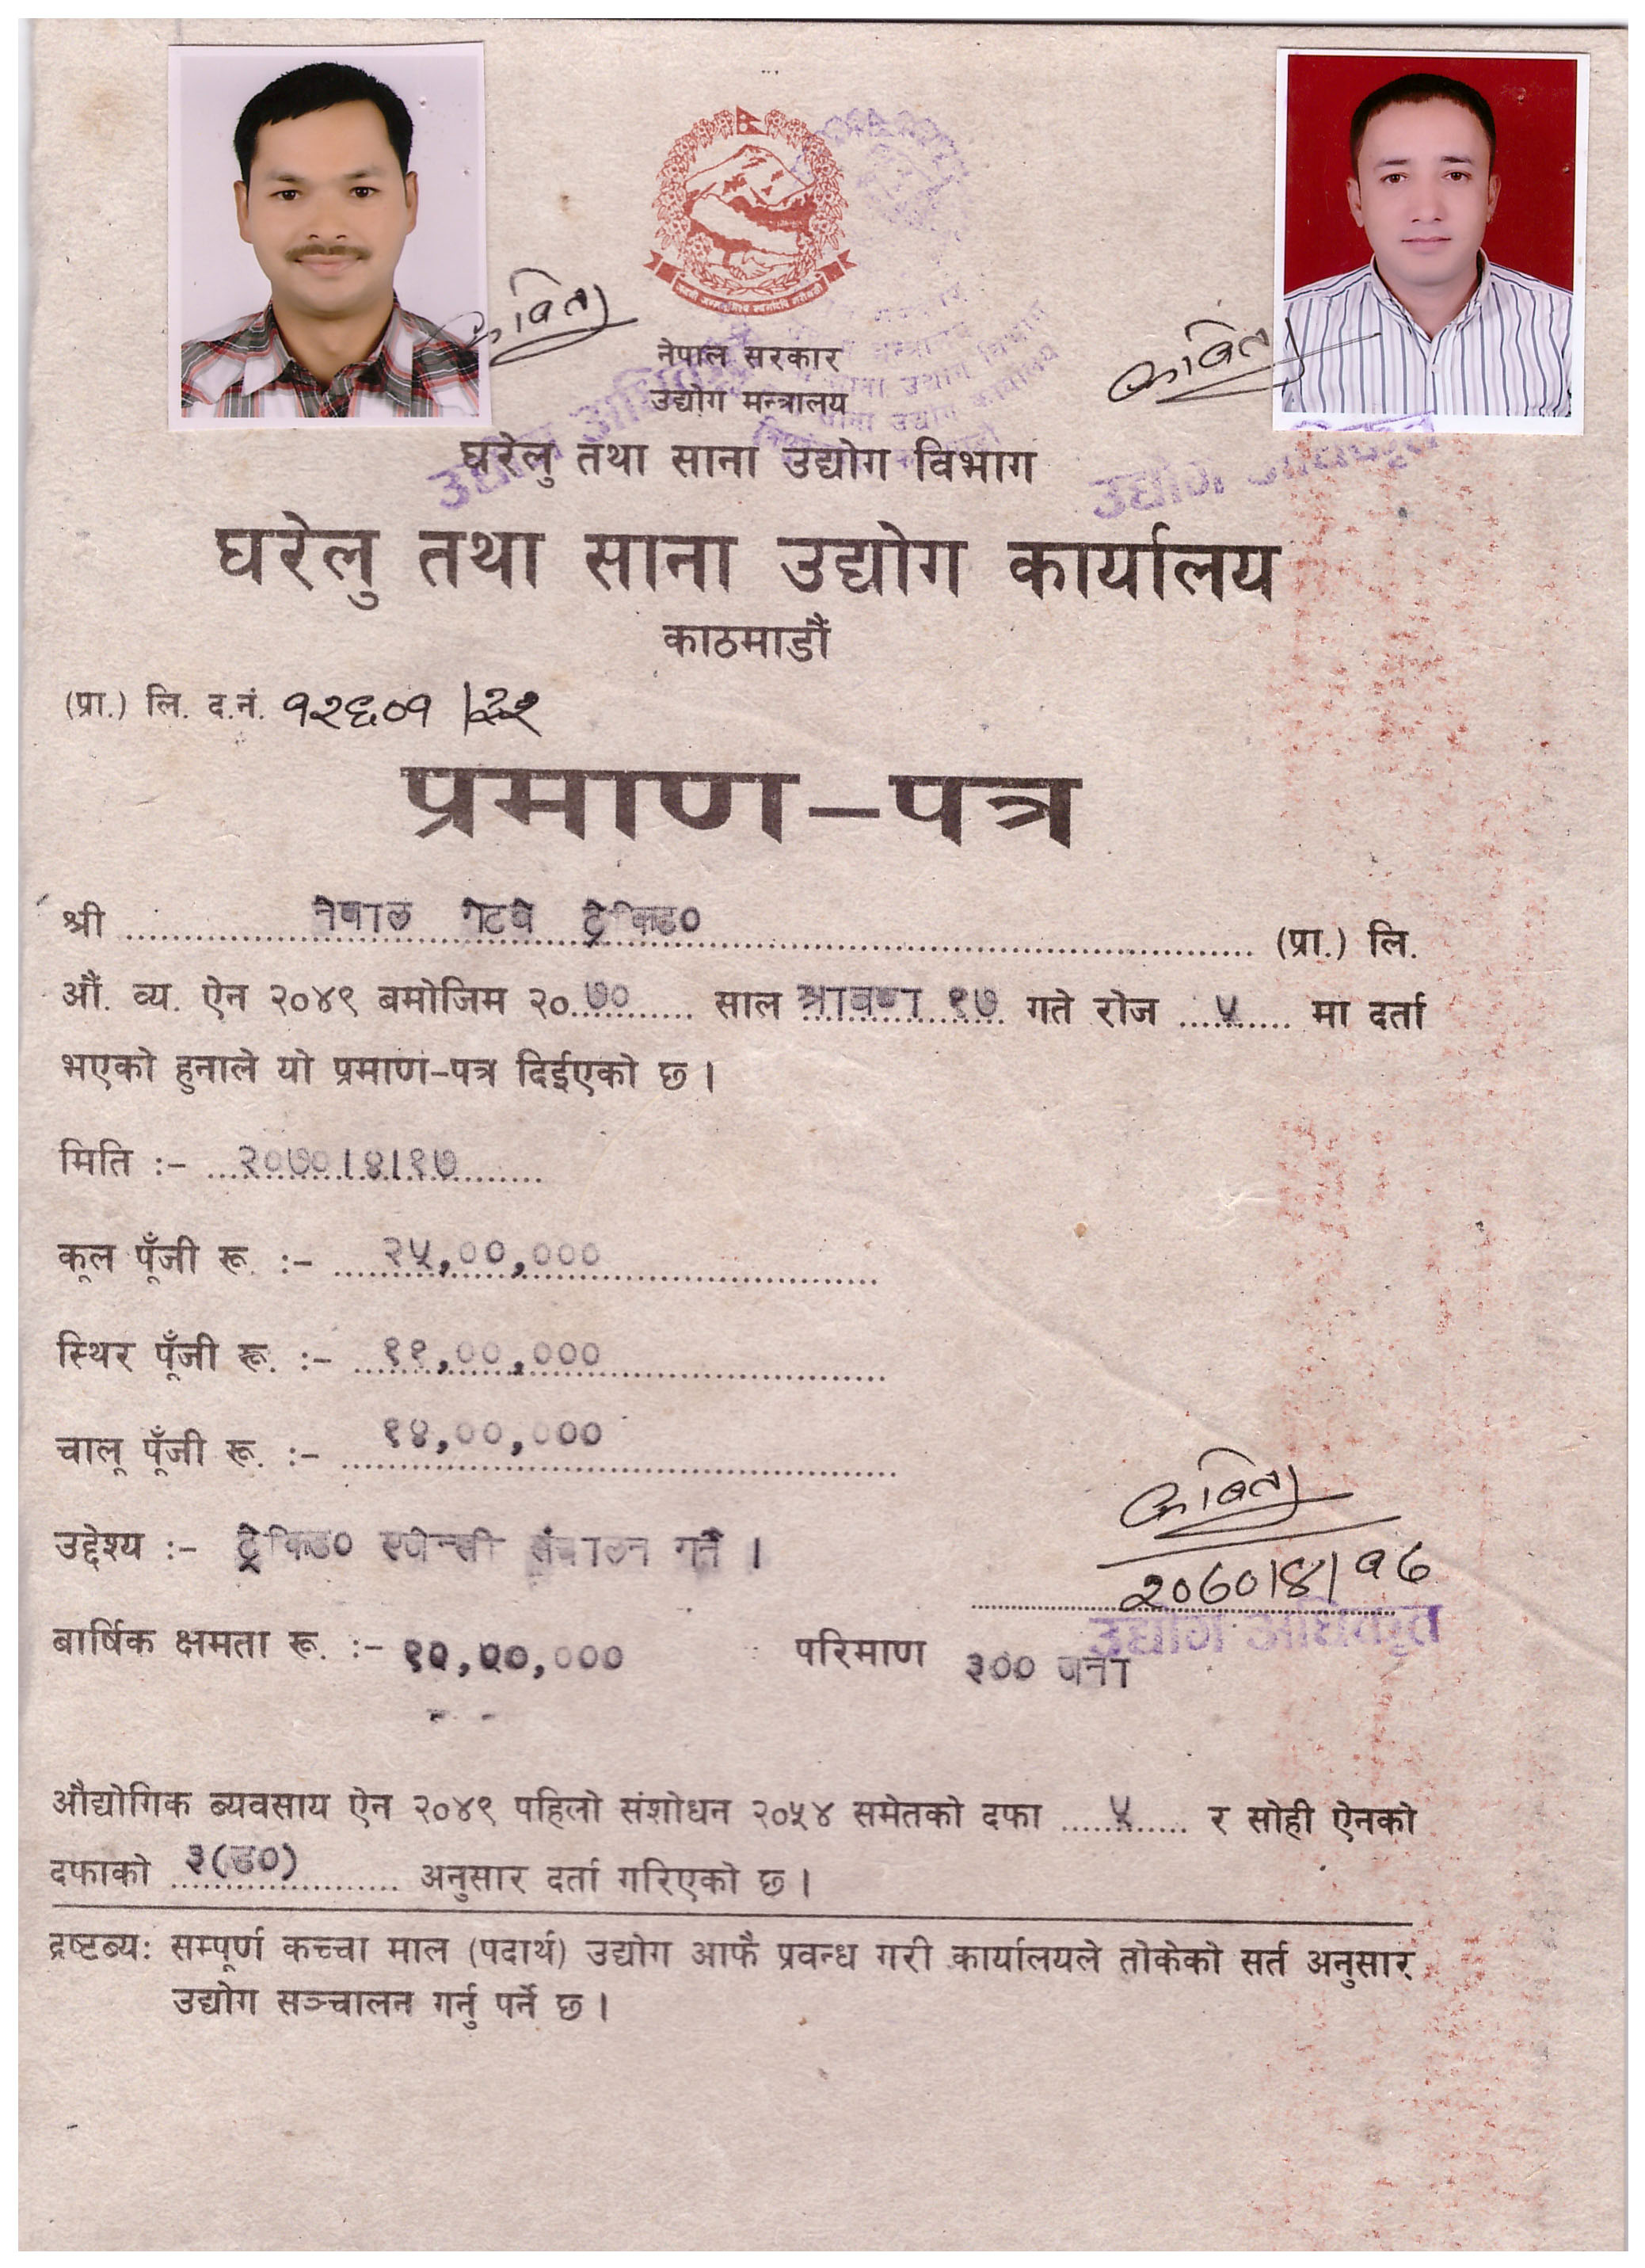 नेपाल सरकार
उद्योग मन्त्रालय
घरेलु तथा साना उद्योग विभाग
घरेलु तथा साना उद्योग कार्यालय
काठमाडौं
(प्रा.) लि. द.नं. १२६०१
प्रमाण-पत्र
श्री नेपाल गेटवे ट्रेकिङ० (प्रा.) लि.
औं. व्य. ऐन २०४९ बमोजिम २०७० साल श्रावण १७ गते रोज ५ मा दर्ता
भएको हुनाले यो प्रमाण-पत्र दिईएको छ ।
मिति :- २०७०।४।१७
कूल पूँजी रू. :- २५,००,०००
स्थिर पूँजी रू. :- ११,००,०००
चालू पूँजी रू. :- १४,००,०००
कबिता
२०७०|४|१७
उद्योग अधिकृत
उद्देश्य :- ट्रेकिङ० एजेन्सी संचालन गर्ने ।
बार्षिक क्षमता रू. :- परिमाण ३०० जना
औद्योगिक ब्यवसाय ऐन २०४९ पहिलो संशोधन २०५४ समेतको दफा ५ र सोही ऐनको
दफाको ३(ङ०) अनुसार दर्ता गरिएको छ ।
द्रष्टब्य: सम्पूर्ण कच्चा माल (पदार्थ) उद्योग आफै प्रवन्ध गरी कार्यालयले तोकेको सर्त अनुसार
उद्योग सञ्चालन गर्नु पर्ने छ ।